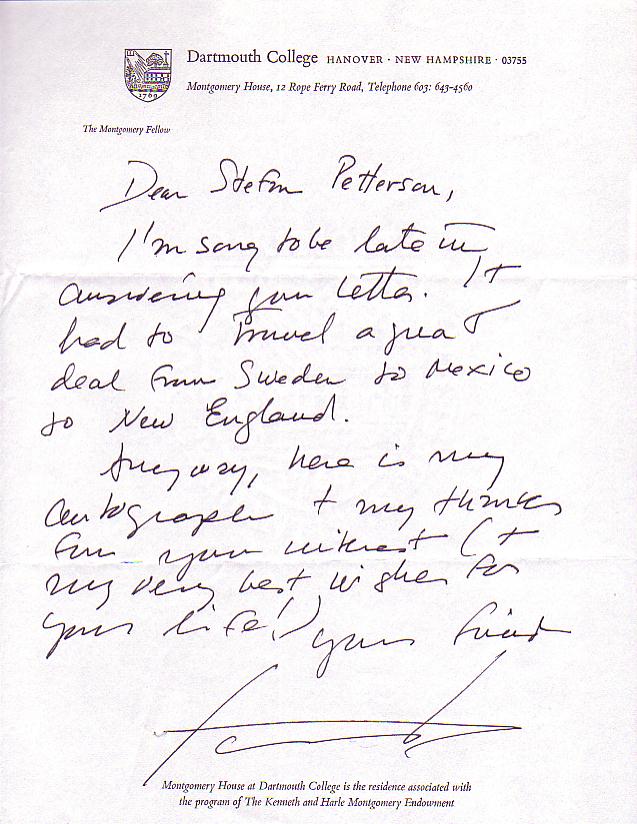 Dartmouth College HANOVER · NEW HAMPSHIRE · 03755
Montgomery House, 12 Rope Ferry Road, Telephone 603: 643-4560
1769
The Montgomery Fellow
Dear Stefan Petterson,
I'm sorry to be late in
answering your letter. It
had to travel a great
deal from Sweden to Mexico
to New England.
Anyway, here is my
autograph + my thanks
for your interest (+
my very best wishes for
your life!) your friend
Montgomery House at Dartmouth College is the residence associated with
the program of The Kenneth and Harle Montgomery Endowment